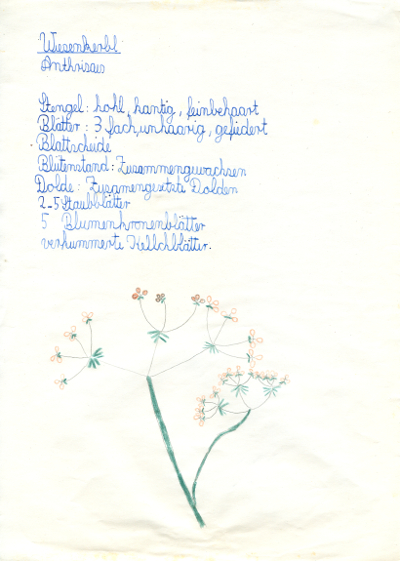 Wiesenkerbl
Anthriscus
Stengel: hohl, kantig, feinbehaart
Blätter: 3 fach, unhaarig, gefidert
Blattscheide
Blütenstand: Zusammengewachsen
Dolde: Zusamengesetzte Dolden
2-5 Staubblätter
5 Blumenkronenblätter
verkummerte Kellchblätter.